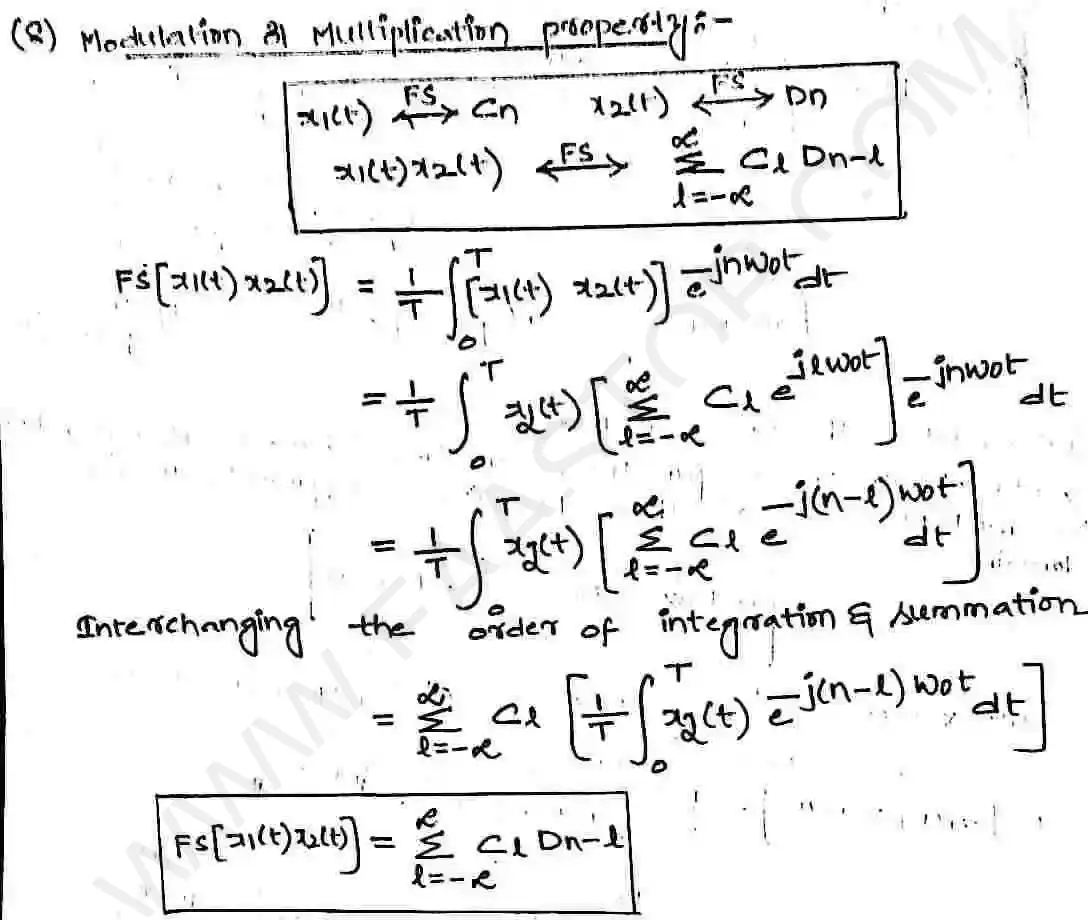 (8) Modulation or Multiplication property:-
x1(t) <-FS-> Cn    x2(t) <-FS-> Dn
x1(t) x2(t) <-FS-> ∞ Σ l=-∞ Cl Dn-l
FS[x1(t) x2(t)] = 1/T ∫0^T [x1(t) x2(t)] e^-jnwot dt
= 1/T ∫0^T x2(t) [∞ Σ l=-∞ Cl e^jlwot] e^-jnwot dt
= 1/T ∫0^T x2(t) [∞ Σ l=-∞ Cl e^-j(n-l)wot dt]
Interchanging the order of integration & summation
= ∞ Σ l=-∞ Cl [1/T ∫0^T x2(t) e^-j(n-l)wot dt]
FS[x1(t) x2(t)] = ∞ Σ l=-∞ Cl Dn-l